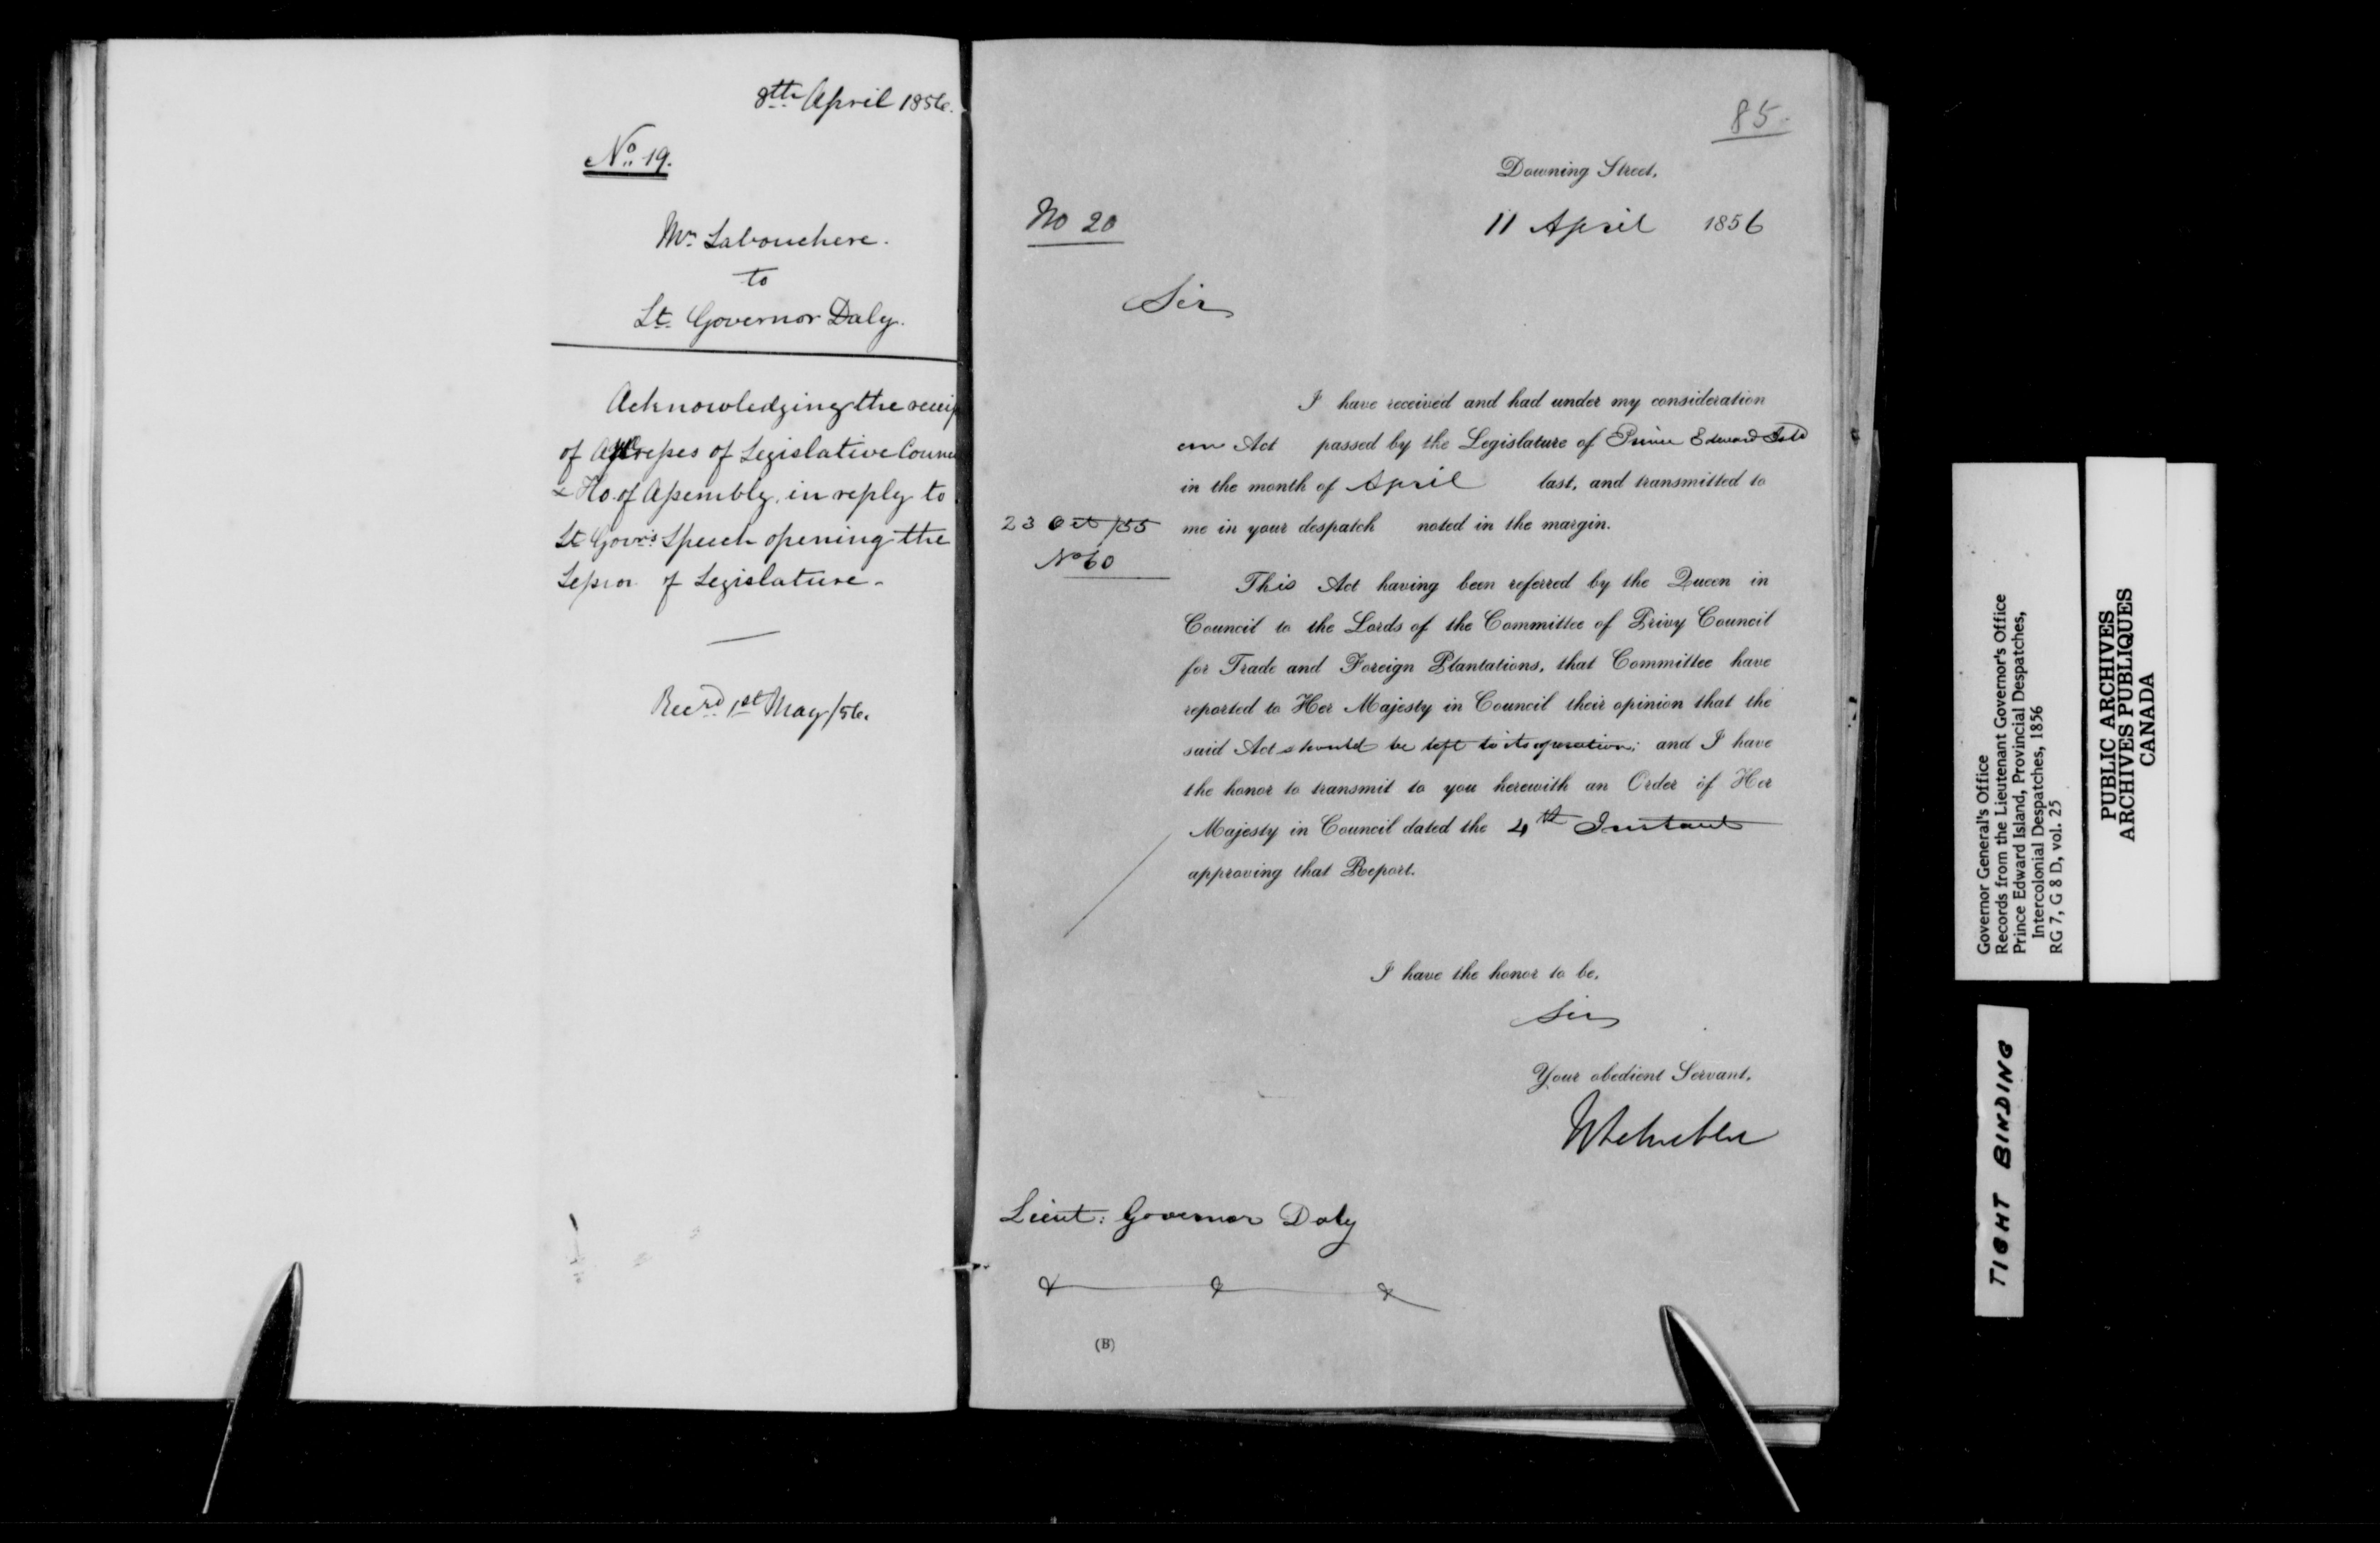 8th April 1856.
No. 19.
Mr. Labouchere.
to
Lt. Governor Daly.
Acknowledging the receip
of Addresses of Legislative Counc
& Ho. of Assembly, in reply to
Lt Govr's Speech opening the
Session of Legislature -
Recd. 1st May/56.
85.
Downing Street,
No 20
11 April 1856
Sir
I have received and had under my consideration
an Act passed by the Legislature of Prince Edward Isld
in the month of April last, and transmitted to
23 Oct/55 me in your despatch noted in the margin.
No 60
This Act having been referred by the Queen in
Council to the Lords of the Committee of Privy Council
for Trade and Foreign Plantations, that Committee have
reported to Her Majesty in Council their opinion that the
said Act should be left to its operation; and I have
the honor to transmit to you herewith an Order of Her
Majesty in Council dated the 4th Instant
approving that Report.
I have the honor to be,
Sir
Your obedient Servant,
Lieut: Governor Daly
(B)
Governor General's Office
Records from the Lieutenant Governor's Office
Prince Edward Island, Provincial Despatches,
Intercolonial Despatches, 1856
RG 7, G 8 D, vol. 25
PUBLIC ARCHIVES
ARCHIVES PUBLIQUES
CANADA
TIGHT BINDING